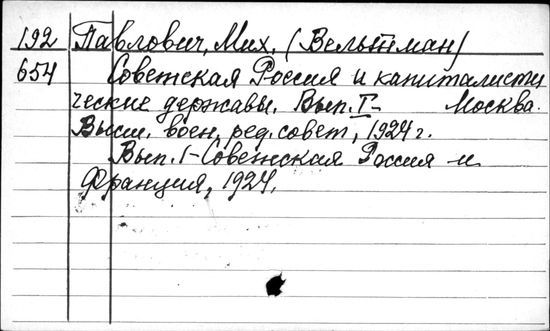 192 Павлович, Мих. (Вельтман)
654 Советская Россия и капиталисти
ческие державы. Вып. I- Москва.
Высш. воен. ред. совет, 1924 г.
Вып. 1-Советская Россия и
Франция, 1924.